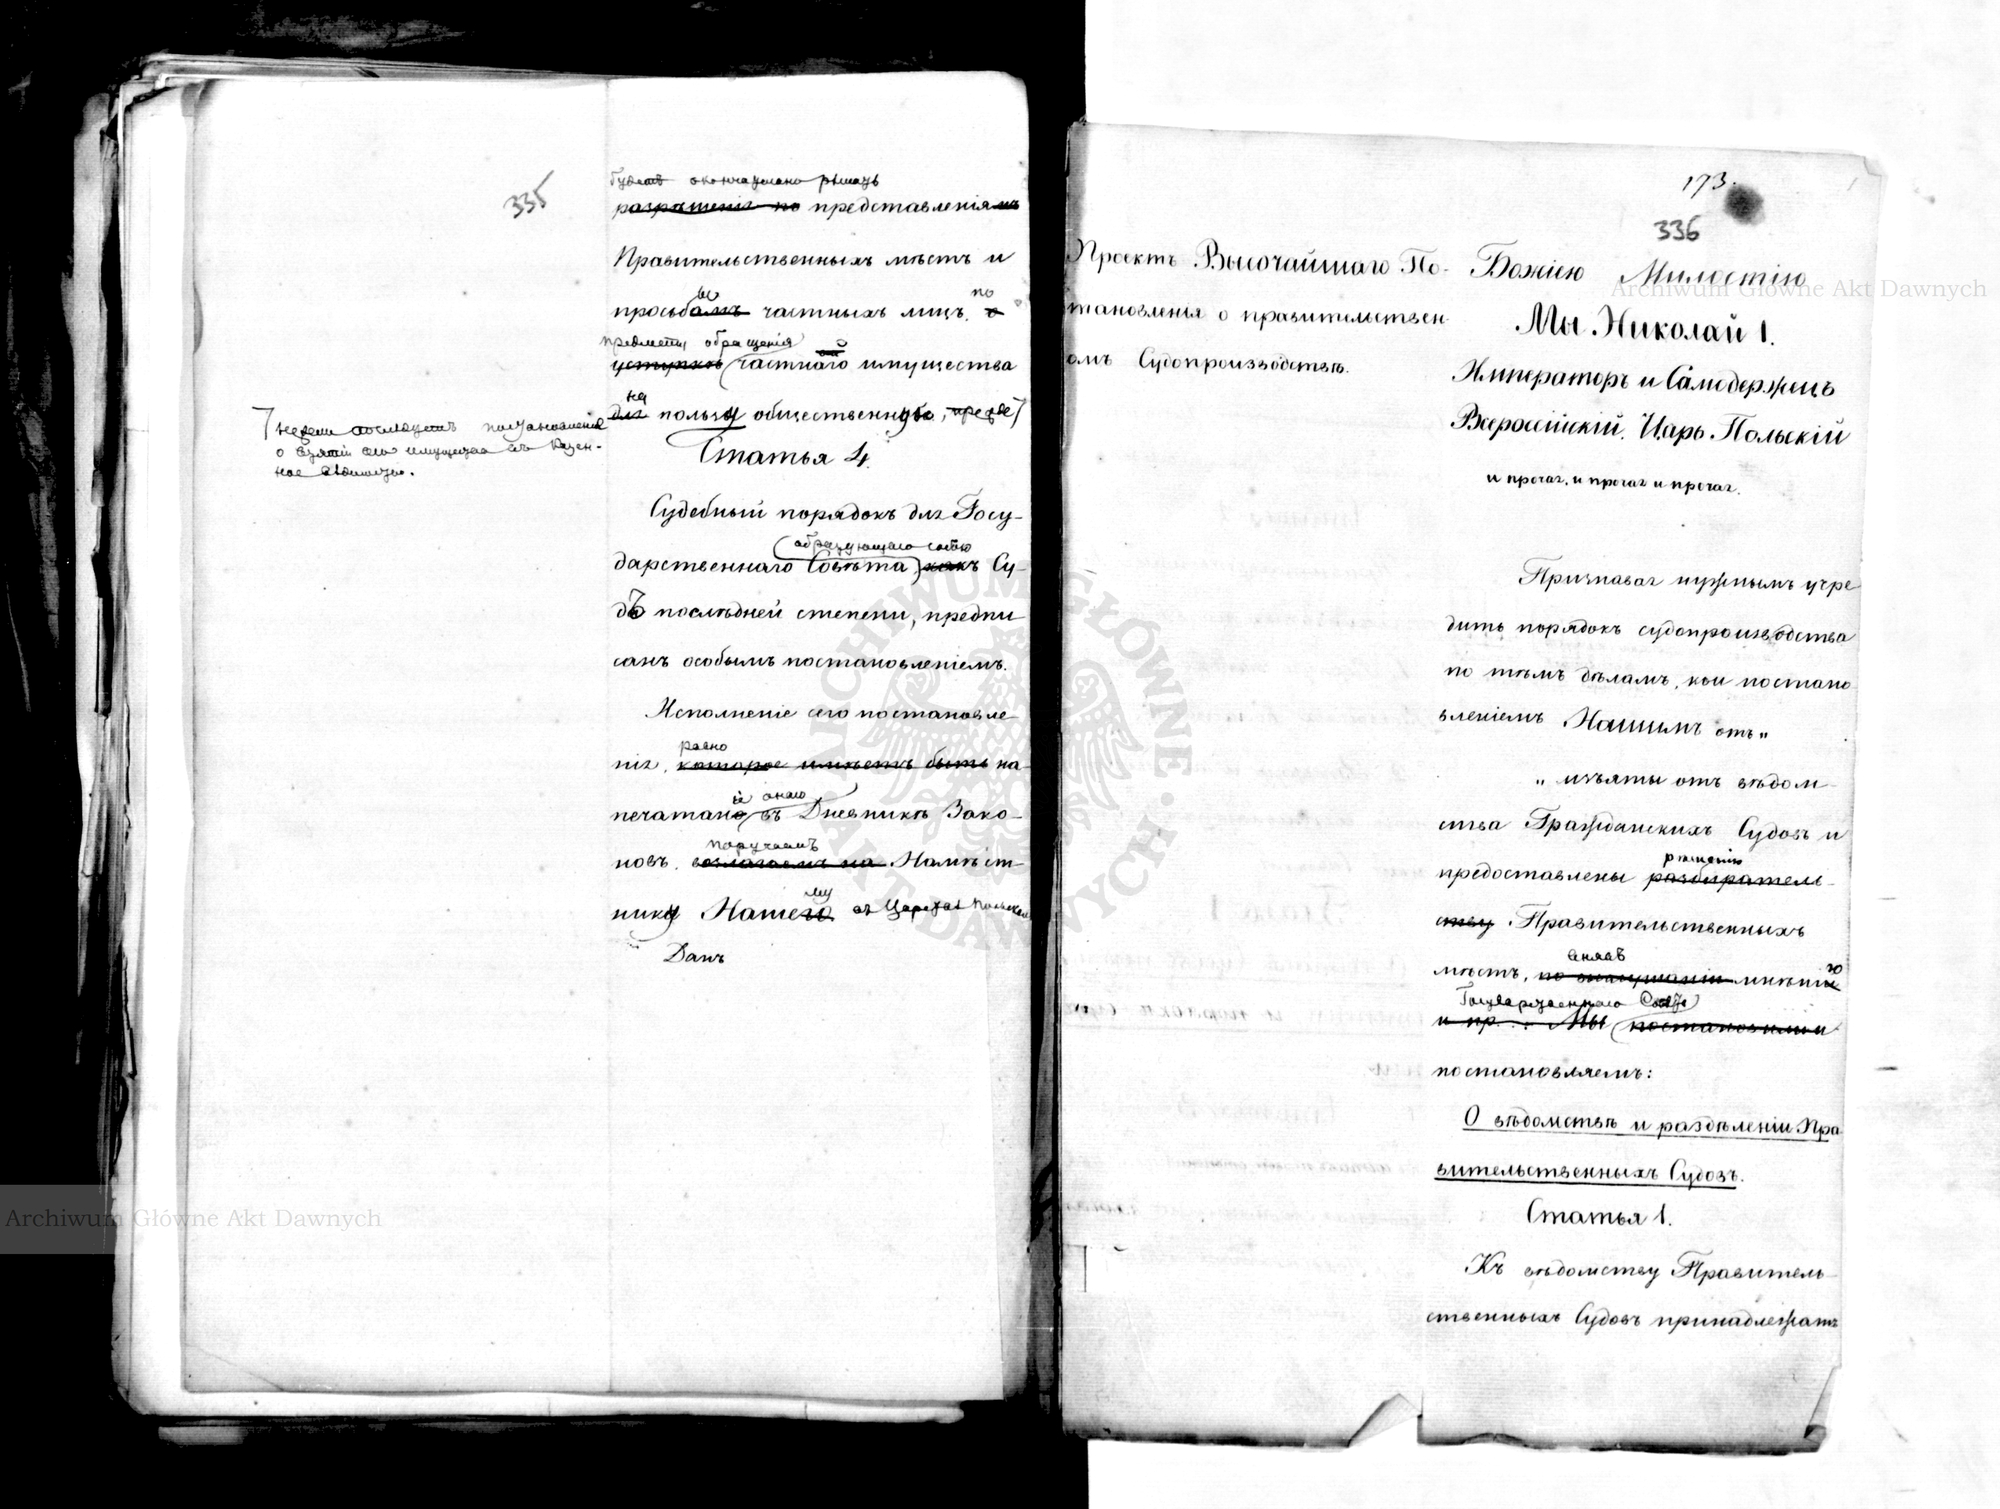 335
будетъ окончательно рѣшать
разрѣшенія по представленіямъ
Правительственныхъ мѣстъ и
просьбамъ частныхъ лицъ, о
по
предметы обращенія
уступкѣ частнаго имущества
на
для пользу общественную, прежде
нежели послѣдуетъ постановленіе
о взятіи сего имущества въ казен-
ное
Статья 4.
Судебный порядокъ для Госу-
образующаго собою
дарственнаго Совѣта, какъ Су-
дъ послѣдней степени, предпи
санъ особымъ постановленіемъ.
Исполненіе сего постановле-
равно
нія, которое имѣетъ быть на-
и онаго
печатано въ Дневникѣ Зако-
поручаемъ
новъ, возлагаемъ на Намѣст-
му
нику Нашего въ Царствѣ Польскомъ
Данъ
173.
336
Проектъ Высочайшаго По-
тановленія о правительствен-
омъ Судопроизводствѣ.
Божіею Милостію
Мы Николай I.
Императоръ и Самодержецъ
Всероссійскій, Царь Польскій
и прочая, и прочая и прочая.
Признавая нужнымъ учре
дить порядокъ судопроизводства
по тѣмъ дѣламъ, кои постано
вленіемъ Нашимъ отъ "
" изъяты отъ вѣдом-
ства Гражданскихъ Судовъ и
рѣшенію
предоставлены разбиратель-
ству Правительственныхъ
внявъ
мѣстъ, по выслушаніи мнѣнію
Государственнаго Совѣта
и пр... Мы постановили
постановляемъ:
О вѣдомствѣ и раздѣленіи Пра
вительственныхъ Судовъ.
Статья 1.
Къ вѣдомству Правитель-
ственныхъ Судовъ принадлежатъ
Archiwum Główne Akt Dawnych
Archiwum Główne Akt Dawnych
ARCHIWUM GŁÓWNE AKT DAWNYCH